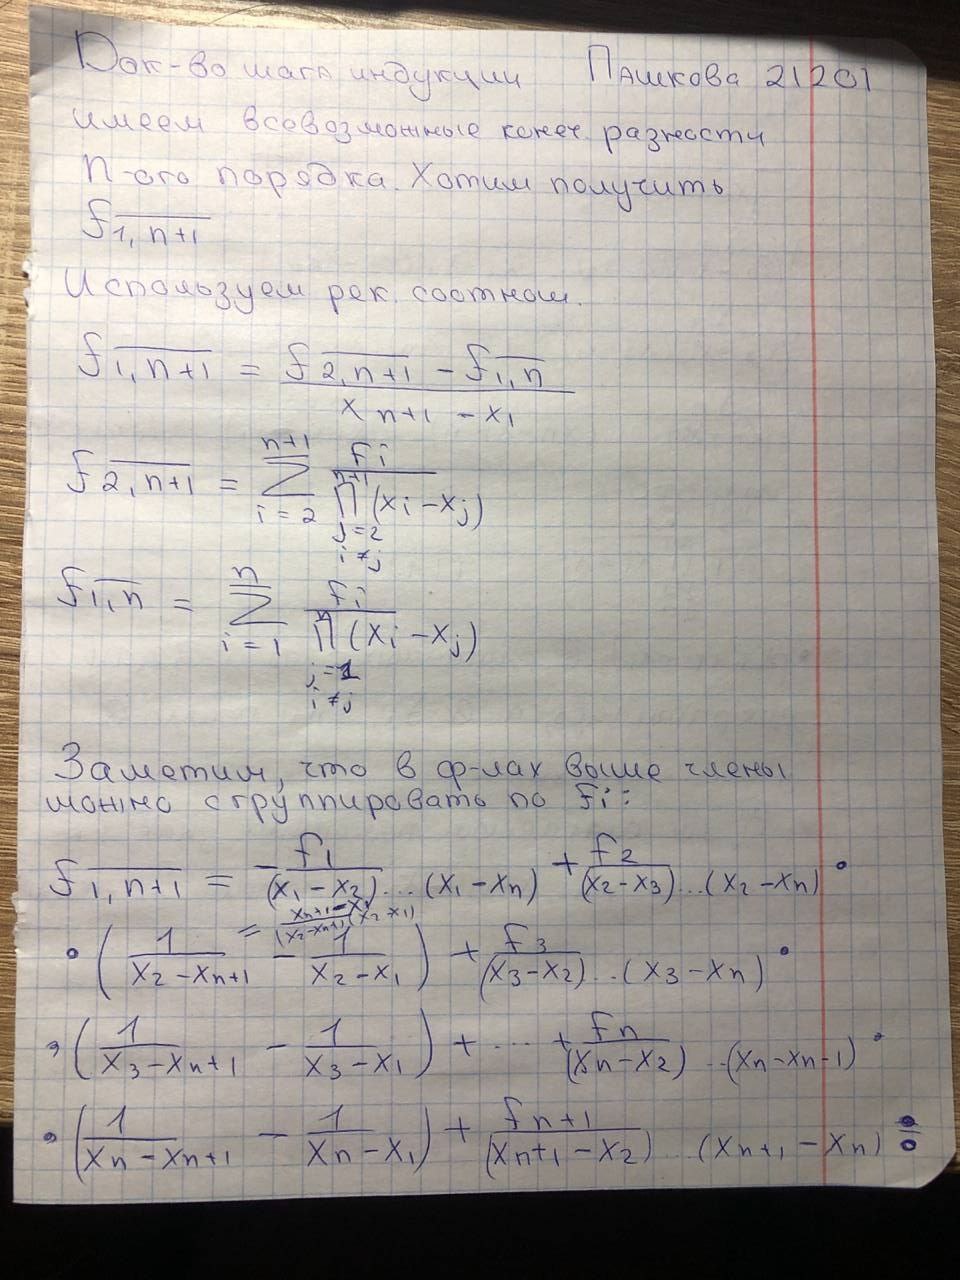 Док-во шага индукции Пашкова 21201
имеем всевозможные конеч. разности
n-ого порядка. Хотим получить
f_{\overline{1,n+1}}
Используем рек. соотнош.
f_{\overline{1,n+1}} = \frac{f_{\overline{2,n+1}} - f_{\overline{1,n}}}{x_{n+1} - x_1}
f_{\overline{2,n+1}} = \sum_{i=2}^{n+1} \frac{f_i}{\prod_{j=2, i≠j}^{n+1} (x_i - x_j)}
f_{\overline{1,n}} = \sum_{i=1}^{n} \frac{f_i}{\prod_{j=1, i≠j}^{n} (x_i - x_j)}
Заметим, что в ф-лах выше члены
можно сгруппировать по f_i:
f_{\overline{1,n+1}} = -\frac{f_1}{(x_1 - x_2)...(x_1 - x_n)} + \frac{f_2}{(x_2 - x_3)...(x_2 - x_n)} •
= \frac{x_{n+1} - x_1}{(x_2 - x_{n+1})(x_2 - x_1)}
• (\frac{1}{x_2 - x_{n+1}} - \frac{1}{x_2 - x_1}) + \frac{f_3}{(x_3 - x_2)...(x_3 - x_n)} •
• (\frac{1}{x_3 - x_{n+1}} - \frac{1}{x_3 - x_1}) + ... + \frac{f_n}{(x_n - x_2)...(x_n - x_{n-1})} •
• (\frac{1}{x_n - x_{n+1}} - \frac{1}{x_n - x_1}) + \frac{f_{n+1}}{(x_{n+1} - x_2)...(x_{n+1} - x_n)}